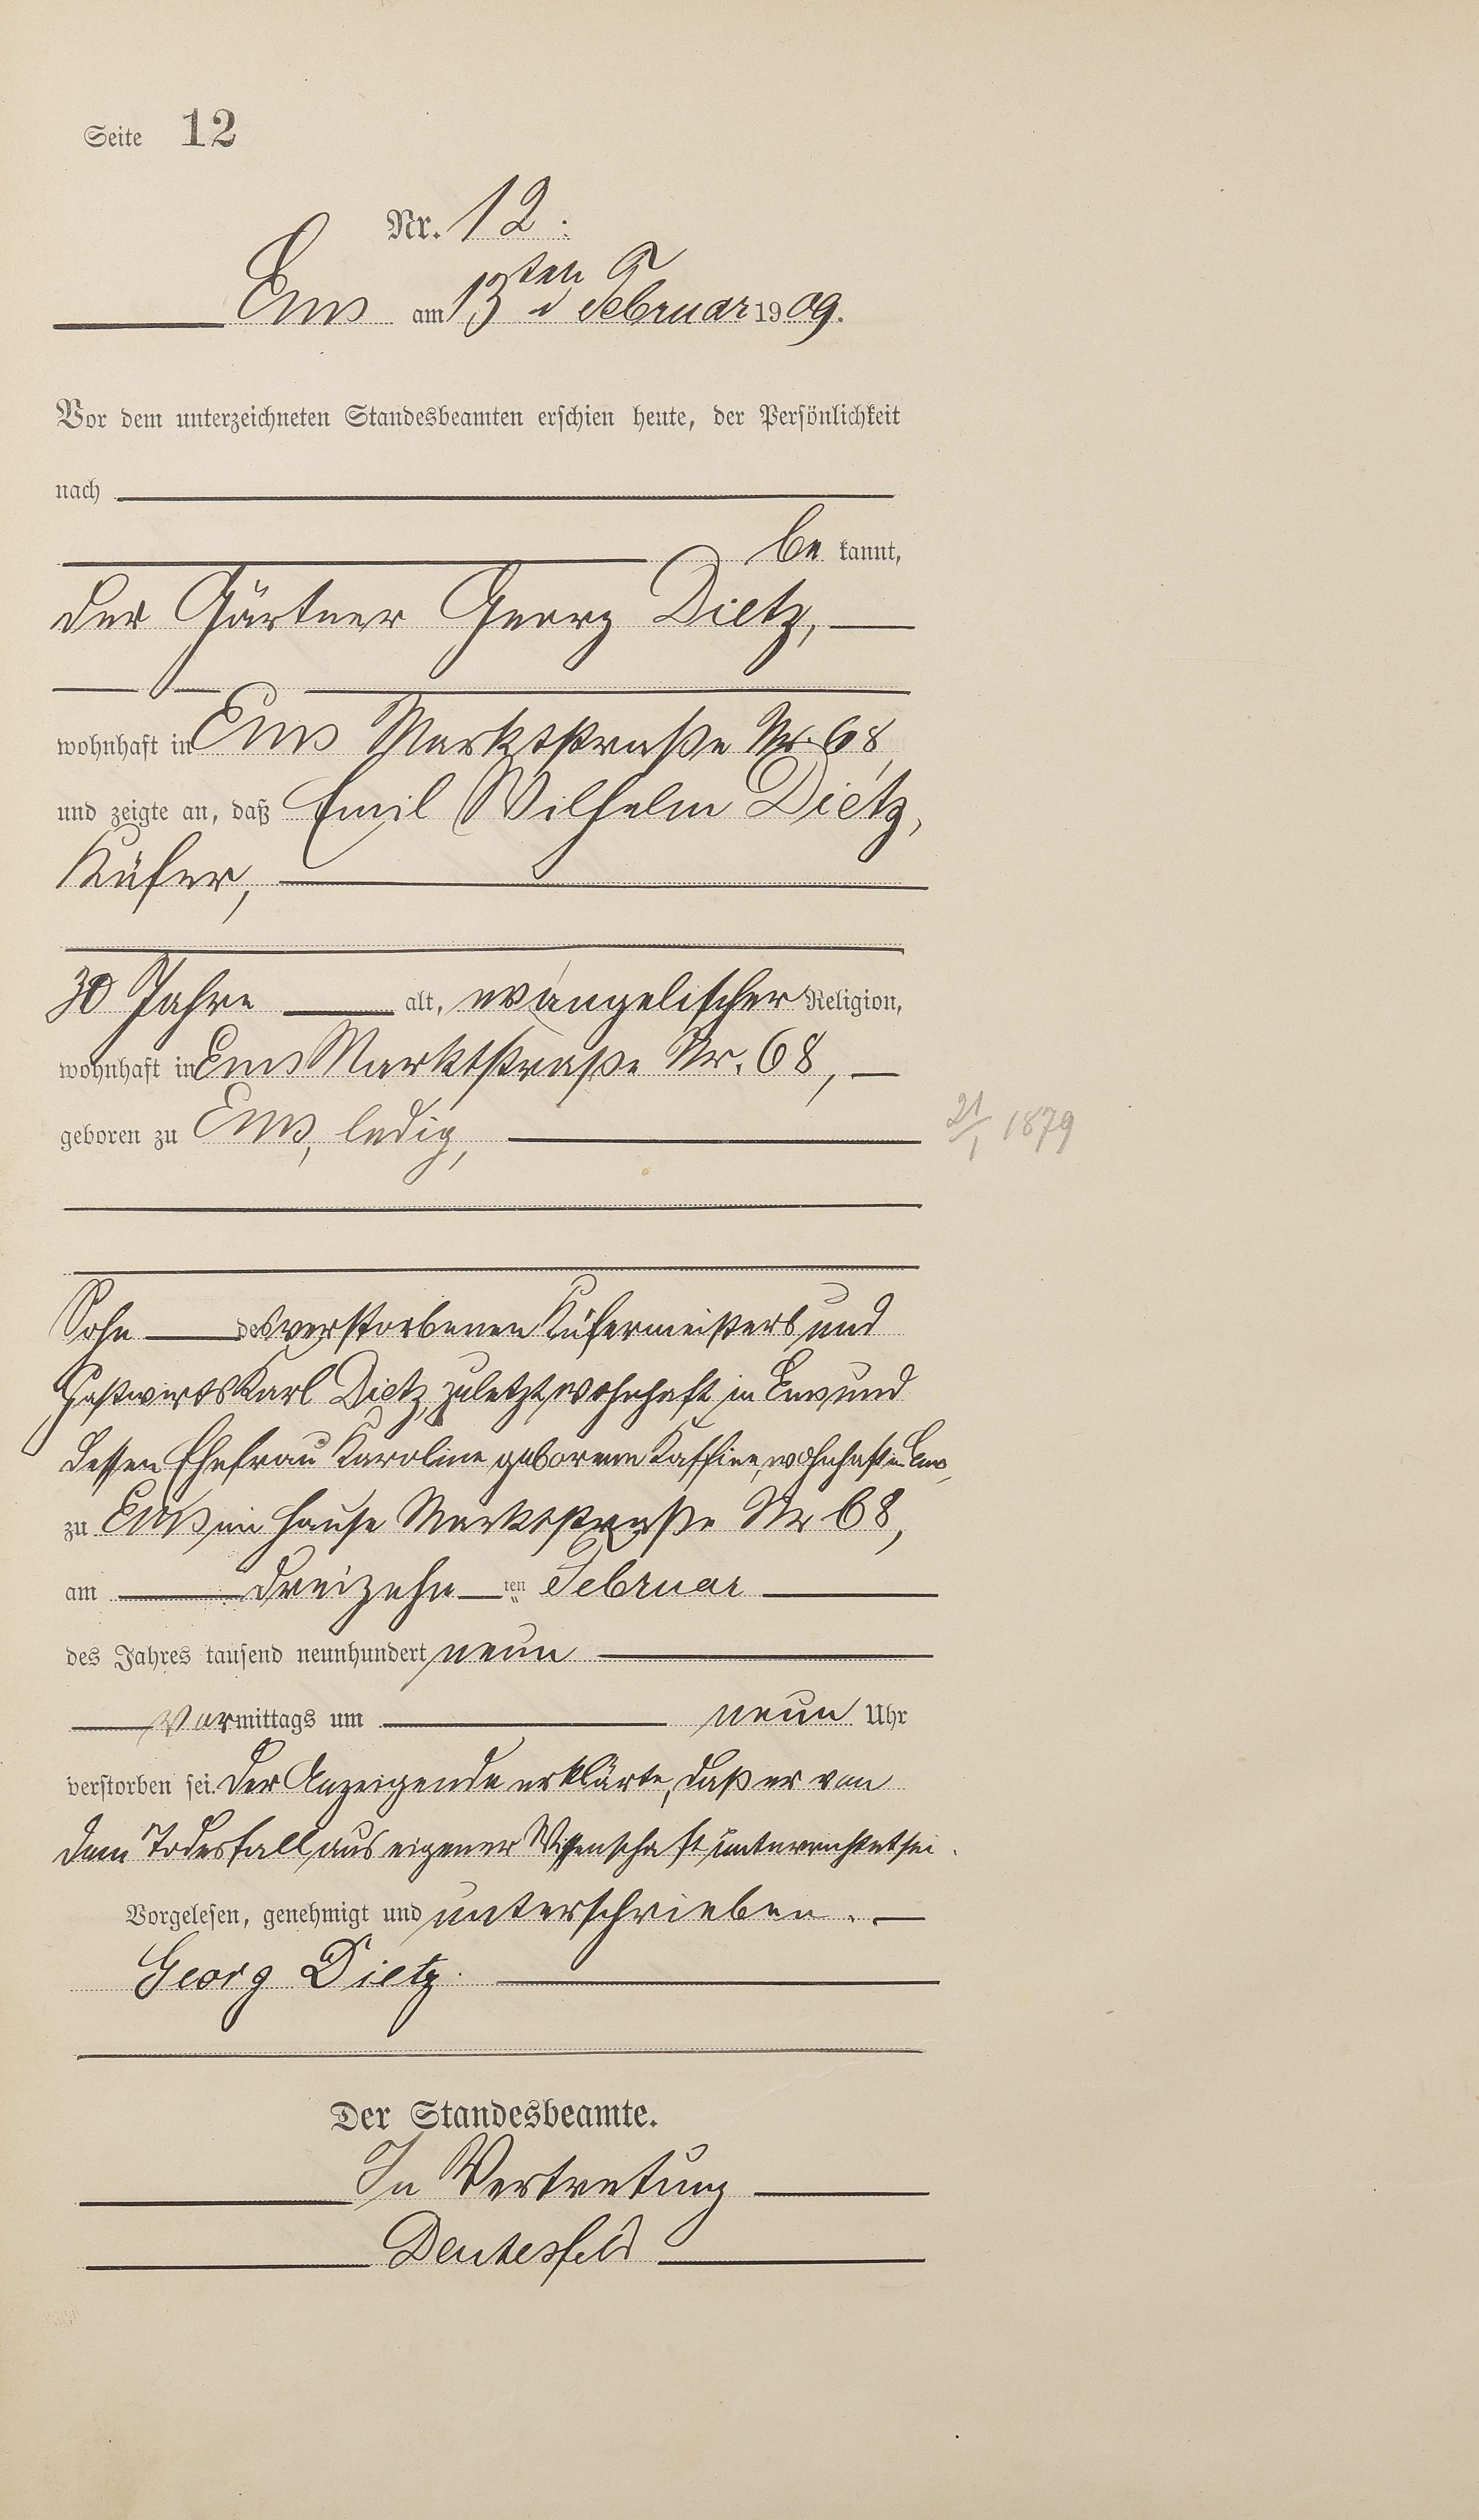 Seite 12
Nr. 12.
Ems am 13ten Februar 1909.
Vor dem unterzeichneten Standesbeamten erschien heute, der Persönlichkeit
nach
be kannt,
der Gärtner Georg Dietz,
wohnhaft in Ems Marktstraße Nr. 68,
und zeigte an, daß Emil Wilhelm Dietz,
Küfer,
30 Jahre alt, evangelischer Religion,
wohnhaft in Ems Marktstraße Nr. 68,
geboren zu Ems, ledig,
21/1 1879
Sohn des verstorbenen Küfermeisters und
Gastwirts Karl Dietz, zuletzt wohnhaft in Ems und
dessen Ehefrau Karoline geborenen wohnhaft in Ems,
zu Ems im Hause Marktstraße Nr 68,
am dreizehn ten Februar
des Jahres tausend neunhundert neun
Vormittags um neun Uhr
verstorben sei. Der Anzeigende erklärte, daß er von
dem Todesfall aus eigener Wissenschaft unterrichtet sei.
Vorgelesen, genehmigt und unterschrieben.
Georg Dietz.
Der Standesbeamte.
In Vertretung